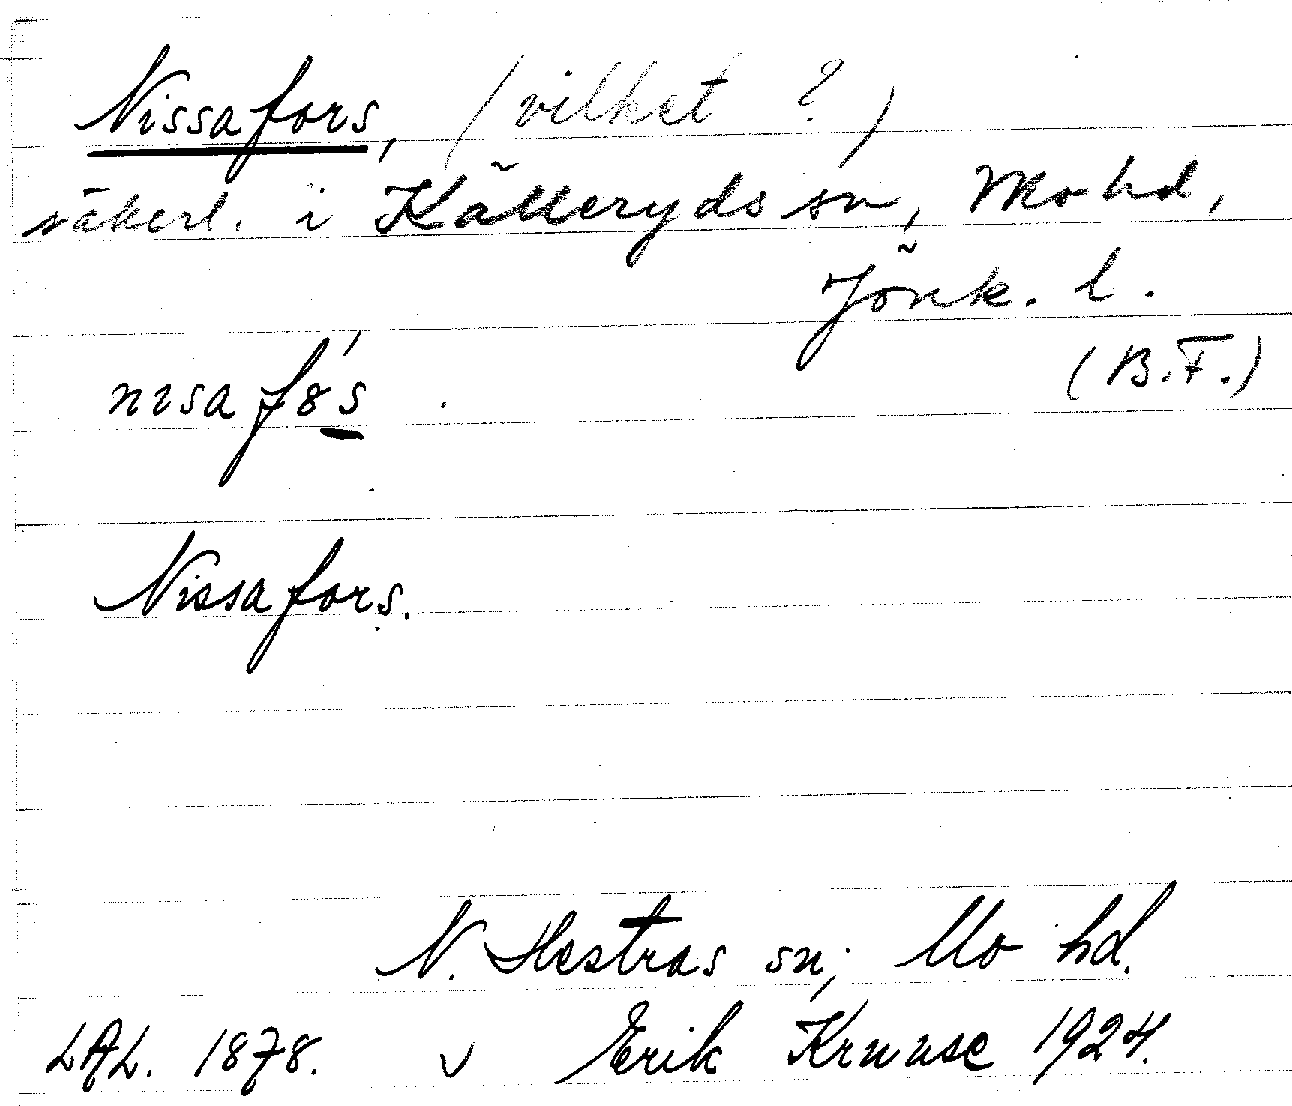 Nissafors, (vilket ?)
säkerl. i Källeryds sn, Mo hd,
Jönk. l.
(B.F.)
nisafs
Nissafors.
N. Hestras sn, Mo hd.
LAL. 1878. v Erik Kruuse 1924.